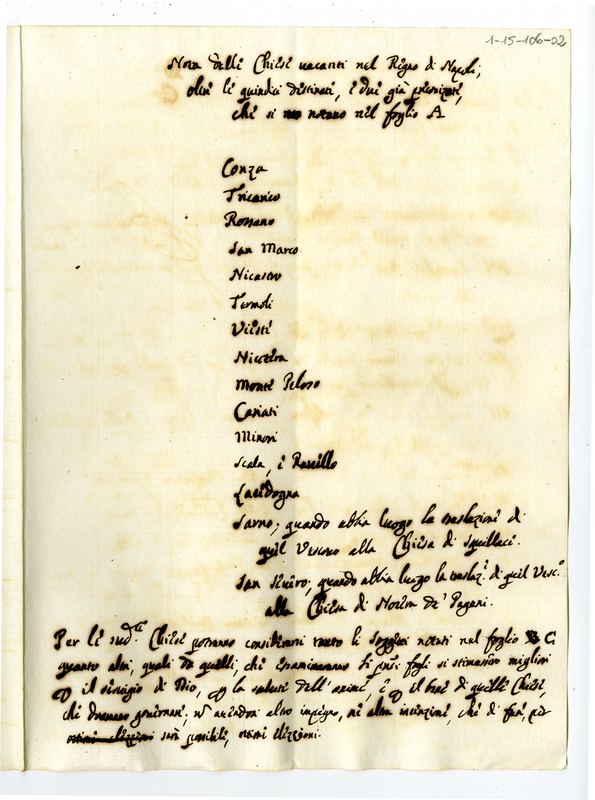 1-15-106-02
Nota delle Chiese vacanti nel Regno di Napoli,
oltre le quindici destinate, e due già preconizate,
che si notano nel foglio A
Conza
Tricarico
Rossano
San Marco
Nicastro
Termoli
Viesti
Nicotera
Monte Peloso
Cariati
Minori
Scala, e Ravello
Lacedogna
Sarno; quando abbia luogo la traslazione di
quel Vescovo alla Chiesa di Squillace.
San Severo; quando abbia luogo la traslaz.e di quel Vesc.o
alla Chiesa di Nocera de' Pagani.
Per le sud.tte Chiese potranno considerarsi tanto li Soggetti notati nel foglio C
quanto altri, quali da quelli, che esamineranno li fogli si stimassero migliori
il servigio di Dio, la salute dell'anime, e il bene di quelle Chiese,
che dovranno governare; altro impegno, ne altra intenzione, che di fare, per
quanto sarà possibile, ottime elezzioni.